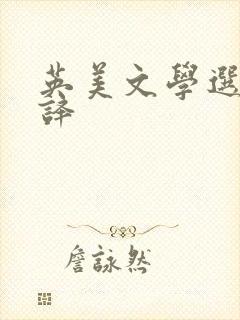 英美文學選
譯
詹詠然